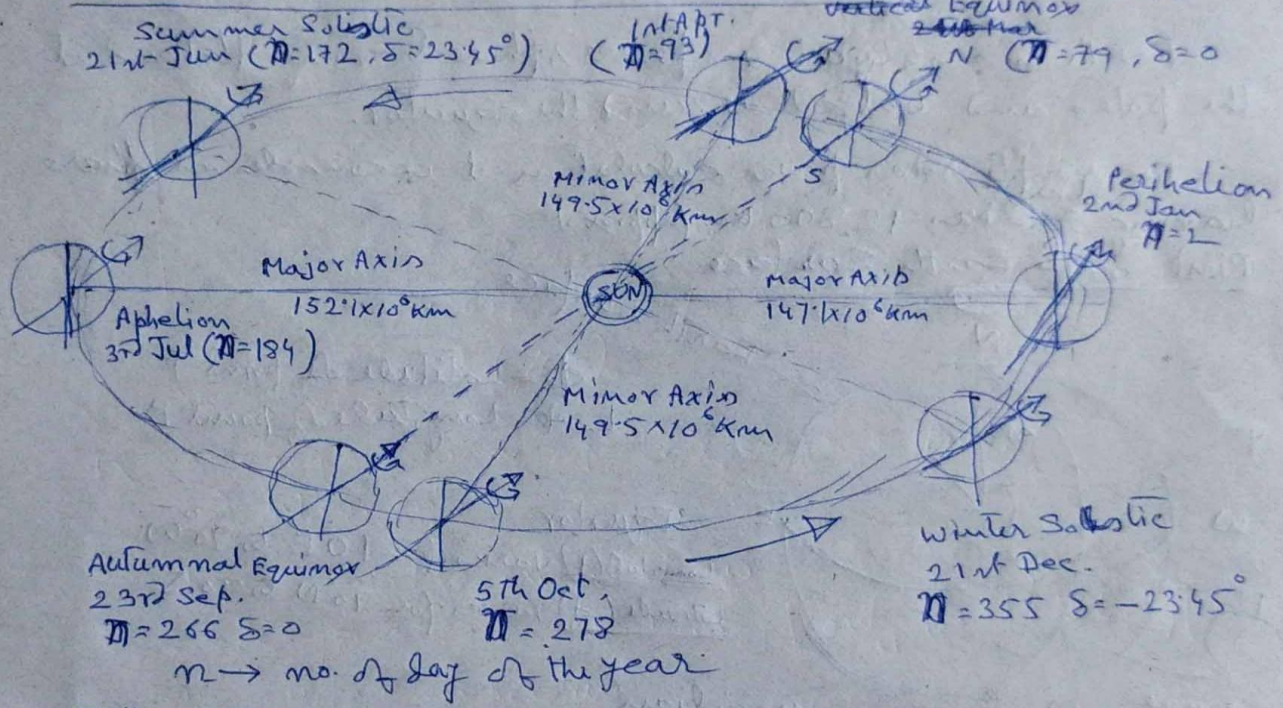 Summer Solistic
21st Jun (n=172, δ=23.45°)
1st Apr.
(n=93)
Equinox
N (n=79, δ=0
S
Perihelion
2nd Jan
n=2
Minor Axis
149.5x10⁶ Km
Major Axis
152.1x10⁶ Km
SUN
Major Axis
147.1x10⁶ Km
Aphelion
3rd Jul (n=184)
Minor Axis
149.5x10⁶ Km
Autumnal Equinox
23rd Sep.
n=266 δ=0
5th Oct.
n=278
Winter Solistic
21st Dec.
n=355 δ=-23.45°
n→ no. of day of the year